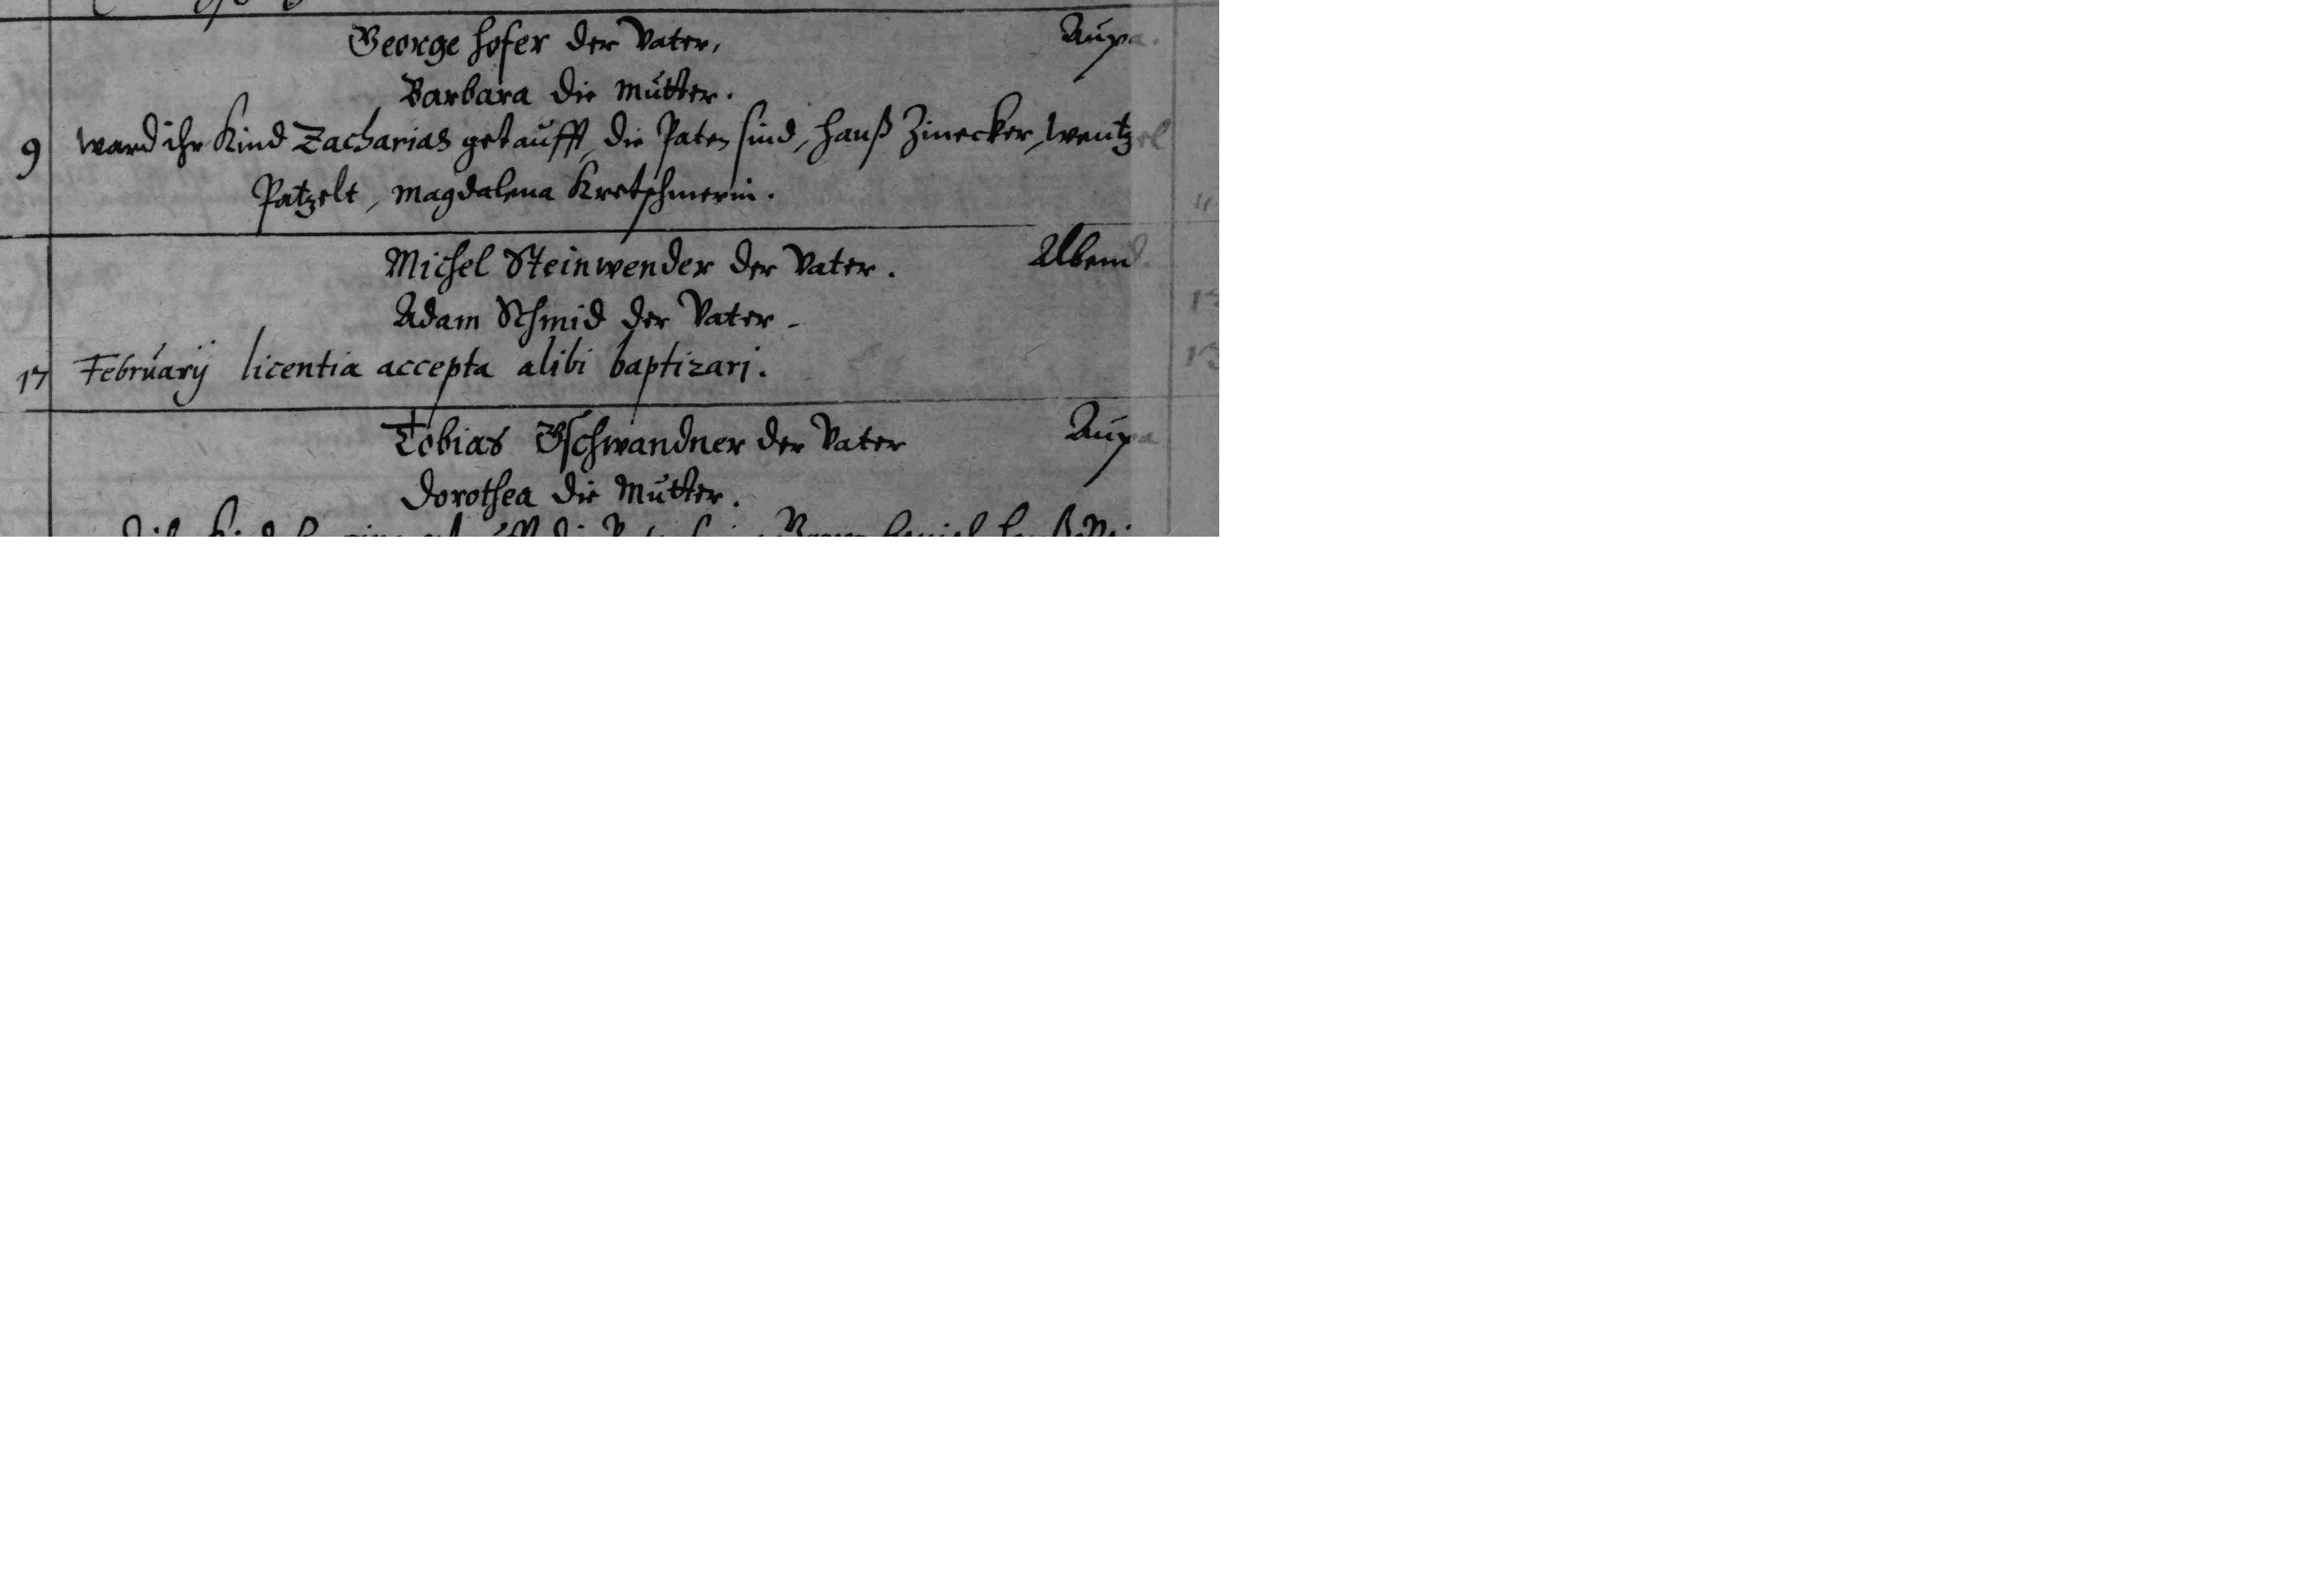 George Hofer der Vater, Aupa.
Barbara die Mutter.
9 ward ihr Kind Zacharias getaufft, die Paten sind, Hanß Zinecker, Wentzel
Patzelt, Magdalena Kretschmerin.
Michel Steinwender der Vater. Albend.
Adam Schmid der Vater.
17 Februarij licentia accepta alibi baptizari.
Tobias Gschwandner der Vater Aupa
Dorothea die Mutter.